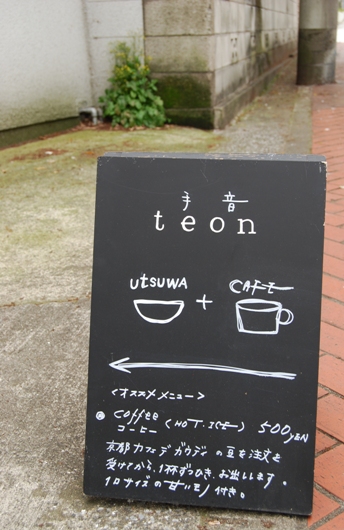 手音
teon
utsuwa + CAFE
<オススメメニュー>
◎ coffee (HOT. ICE) 500yEN
コーヒー
京都カフェデガウディの豆を注文を
受けてから、1杯ずつひき、お出しします。
1口サイズの甘いモノ付き。